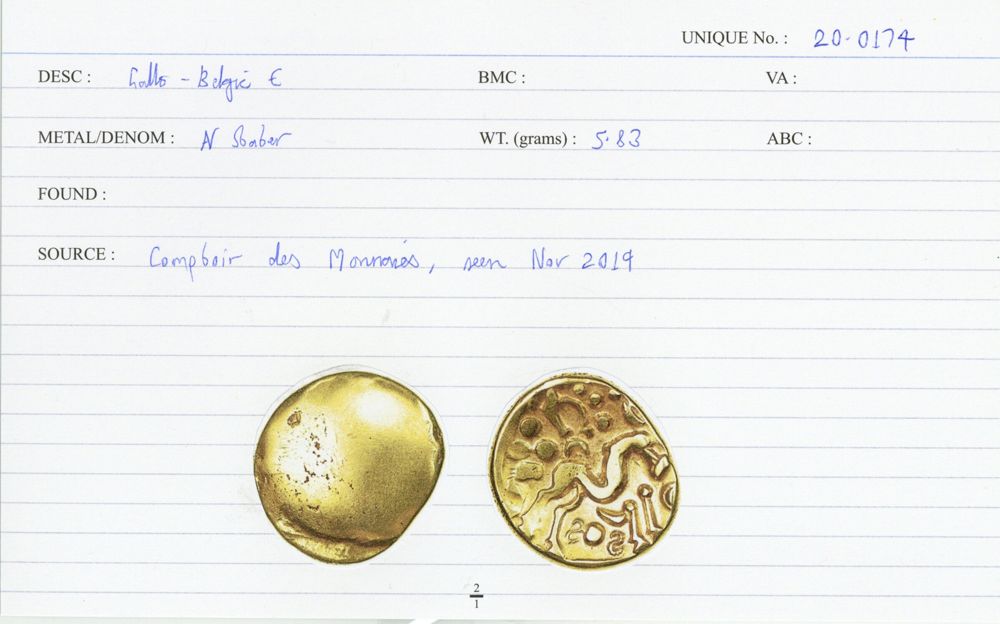 UNIQUE No. : 20-0174
DESC : Gallo - Belgic E BMC : VA :
METAL/DENOM : N Stater WT. (grams) : 5.83 ABC :
FOUND :
SOURCE : Comptoir des Monnaies, seen Nov 2019
2
1